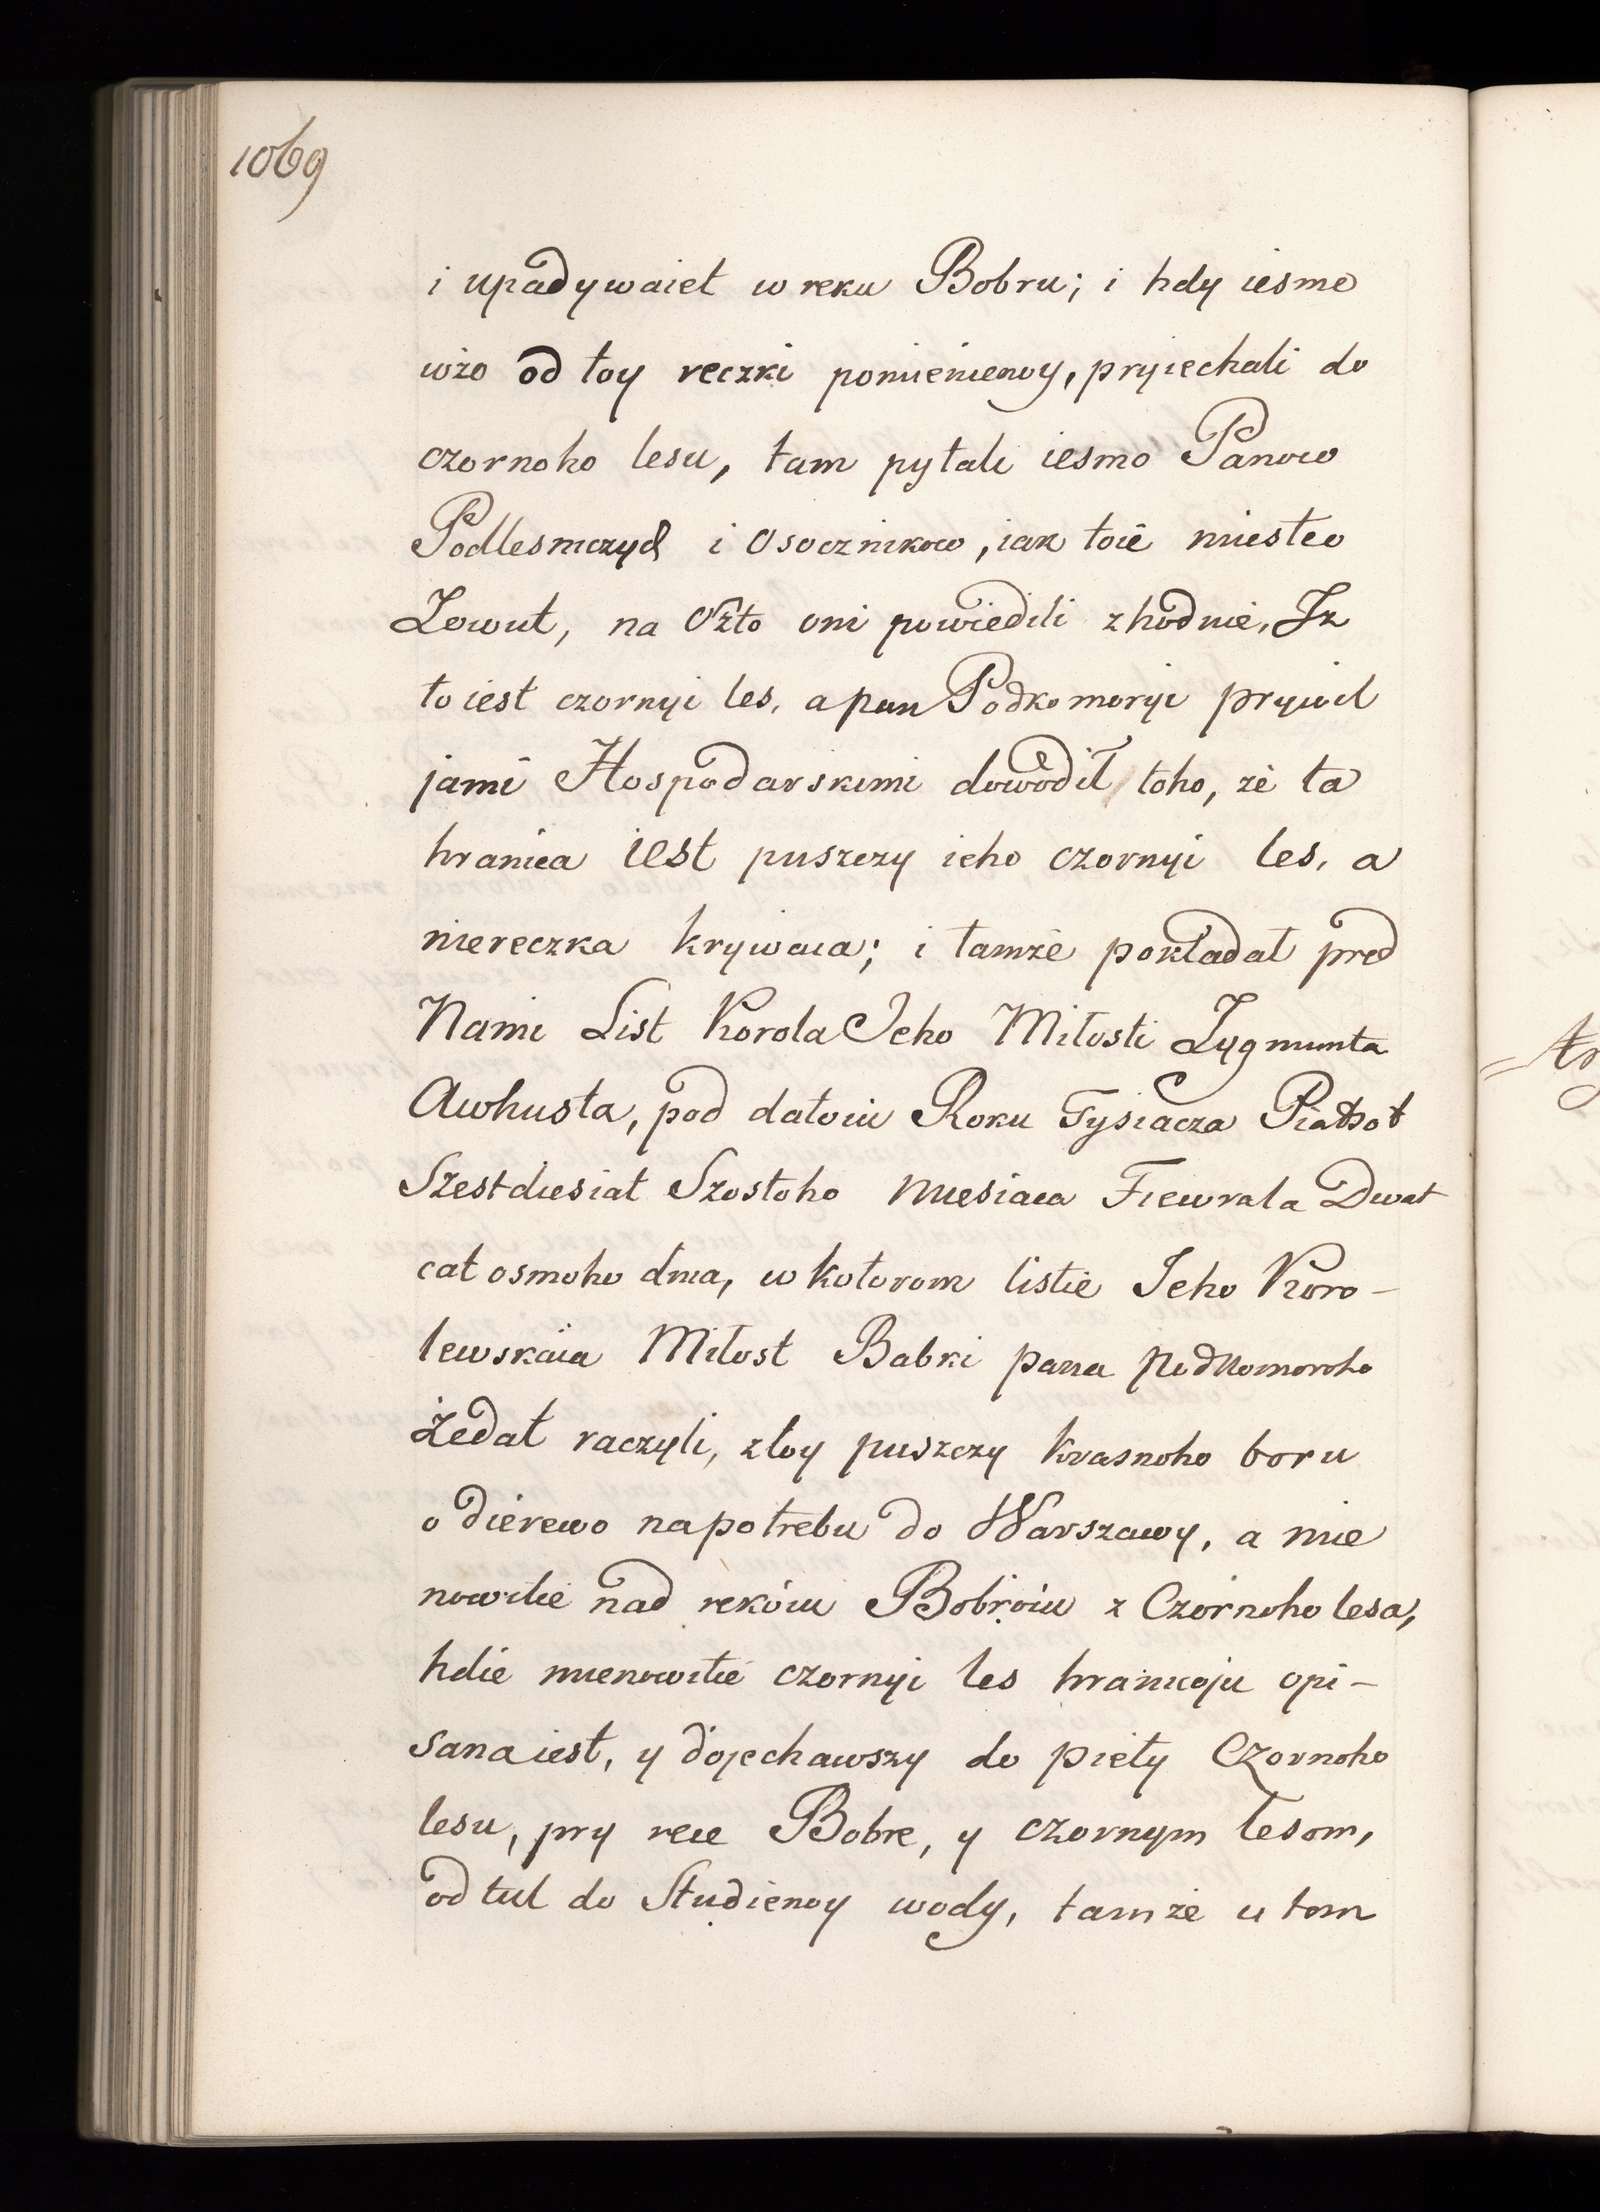 1069
i upadywaiet w reku Bobru; i hdy iesmo
wżo od toy reczki pomienienoy, pryiechali do
czornoho lesu, tam pytali iesmo Panow
Podlesniczych i Osocznikow, iak toie miesteo
Zowut, na Ozto oni powiedili zhodnie, Iz
to iest czornyi les, a pan Podkomoryi prywil
jami Hospodarskimi dowodił toho, że ta
hranica iest puszczy ieho czornyi les, a
niereczka krywaia; i tamże pokładał pred
Nami List Korola Jeho Miłosti Zygmunta
Awhusta, pod datoiu Roku Tysiacza Piatsot
Szestdiesiat Szostoho miesiaca Fiewrala Dwat
cat osmoho dnia, w kotorom listie Jeho Koro-
lewskaia Miłost Babki pana Podkomoroho
Żedał raczyli, z toy puszczy krasnoho boru
o dierewo na potrebu do Warszawy, a mie
nowitie nad rekoiu Bobroiu z Czornoho lesa,
hdie mienowitie czornyi les hranicoju opi-
sana iest, y dojechawszy do piety Czornoho
lesu, pry rece Bobre, y czornym lesom,
od tul do Studienoy wody, tamże u tom